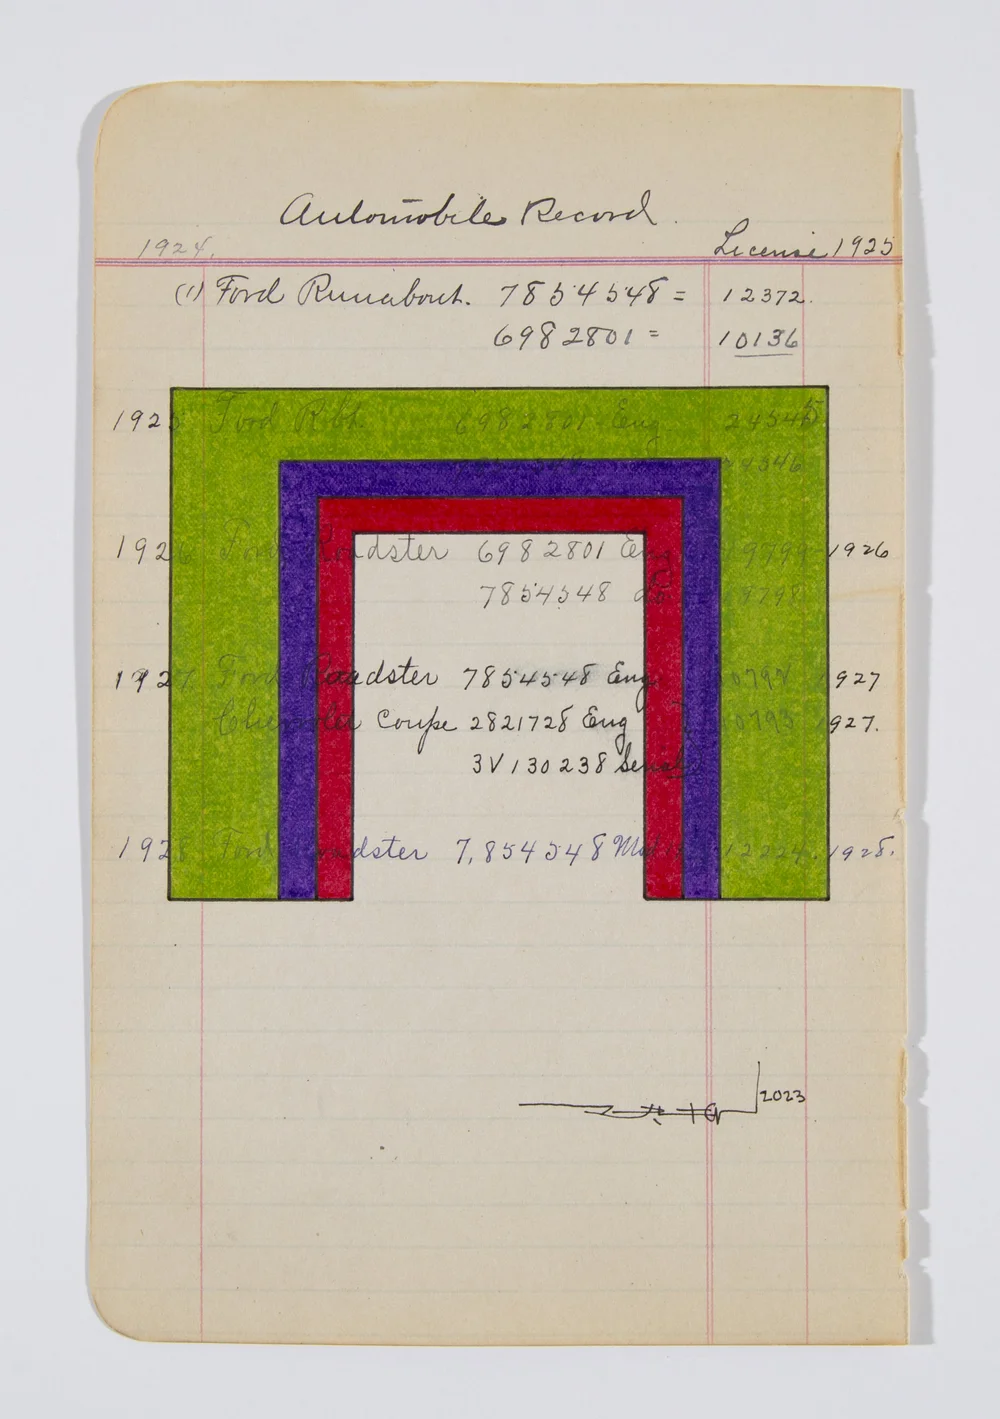 Automobile Record.
1924. License 1925
(1) Ford Runabout. 7854548 = 12372.
6982801 = 10136
1925 Ford Rbt. 6982801 Eng 24545
24546
1926 Ford Roadster 6982801 Eng 19799 1926
7854548 do 19798
1927 Ford Roadster 7854548 Eng 1927
Chevrolet Coupe 2821728 Eng 1927.
3V130238 Serial
1928 Ford Roadster 7,854548 12224. 1928.
2023